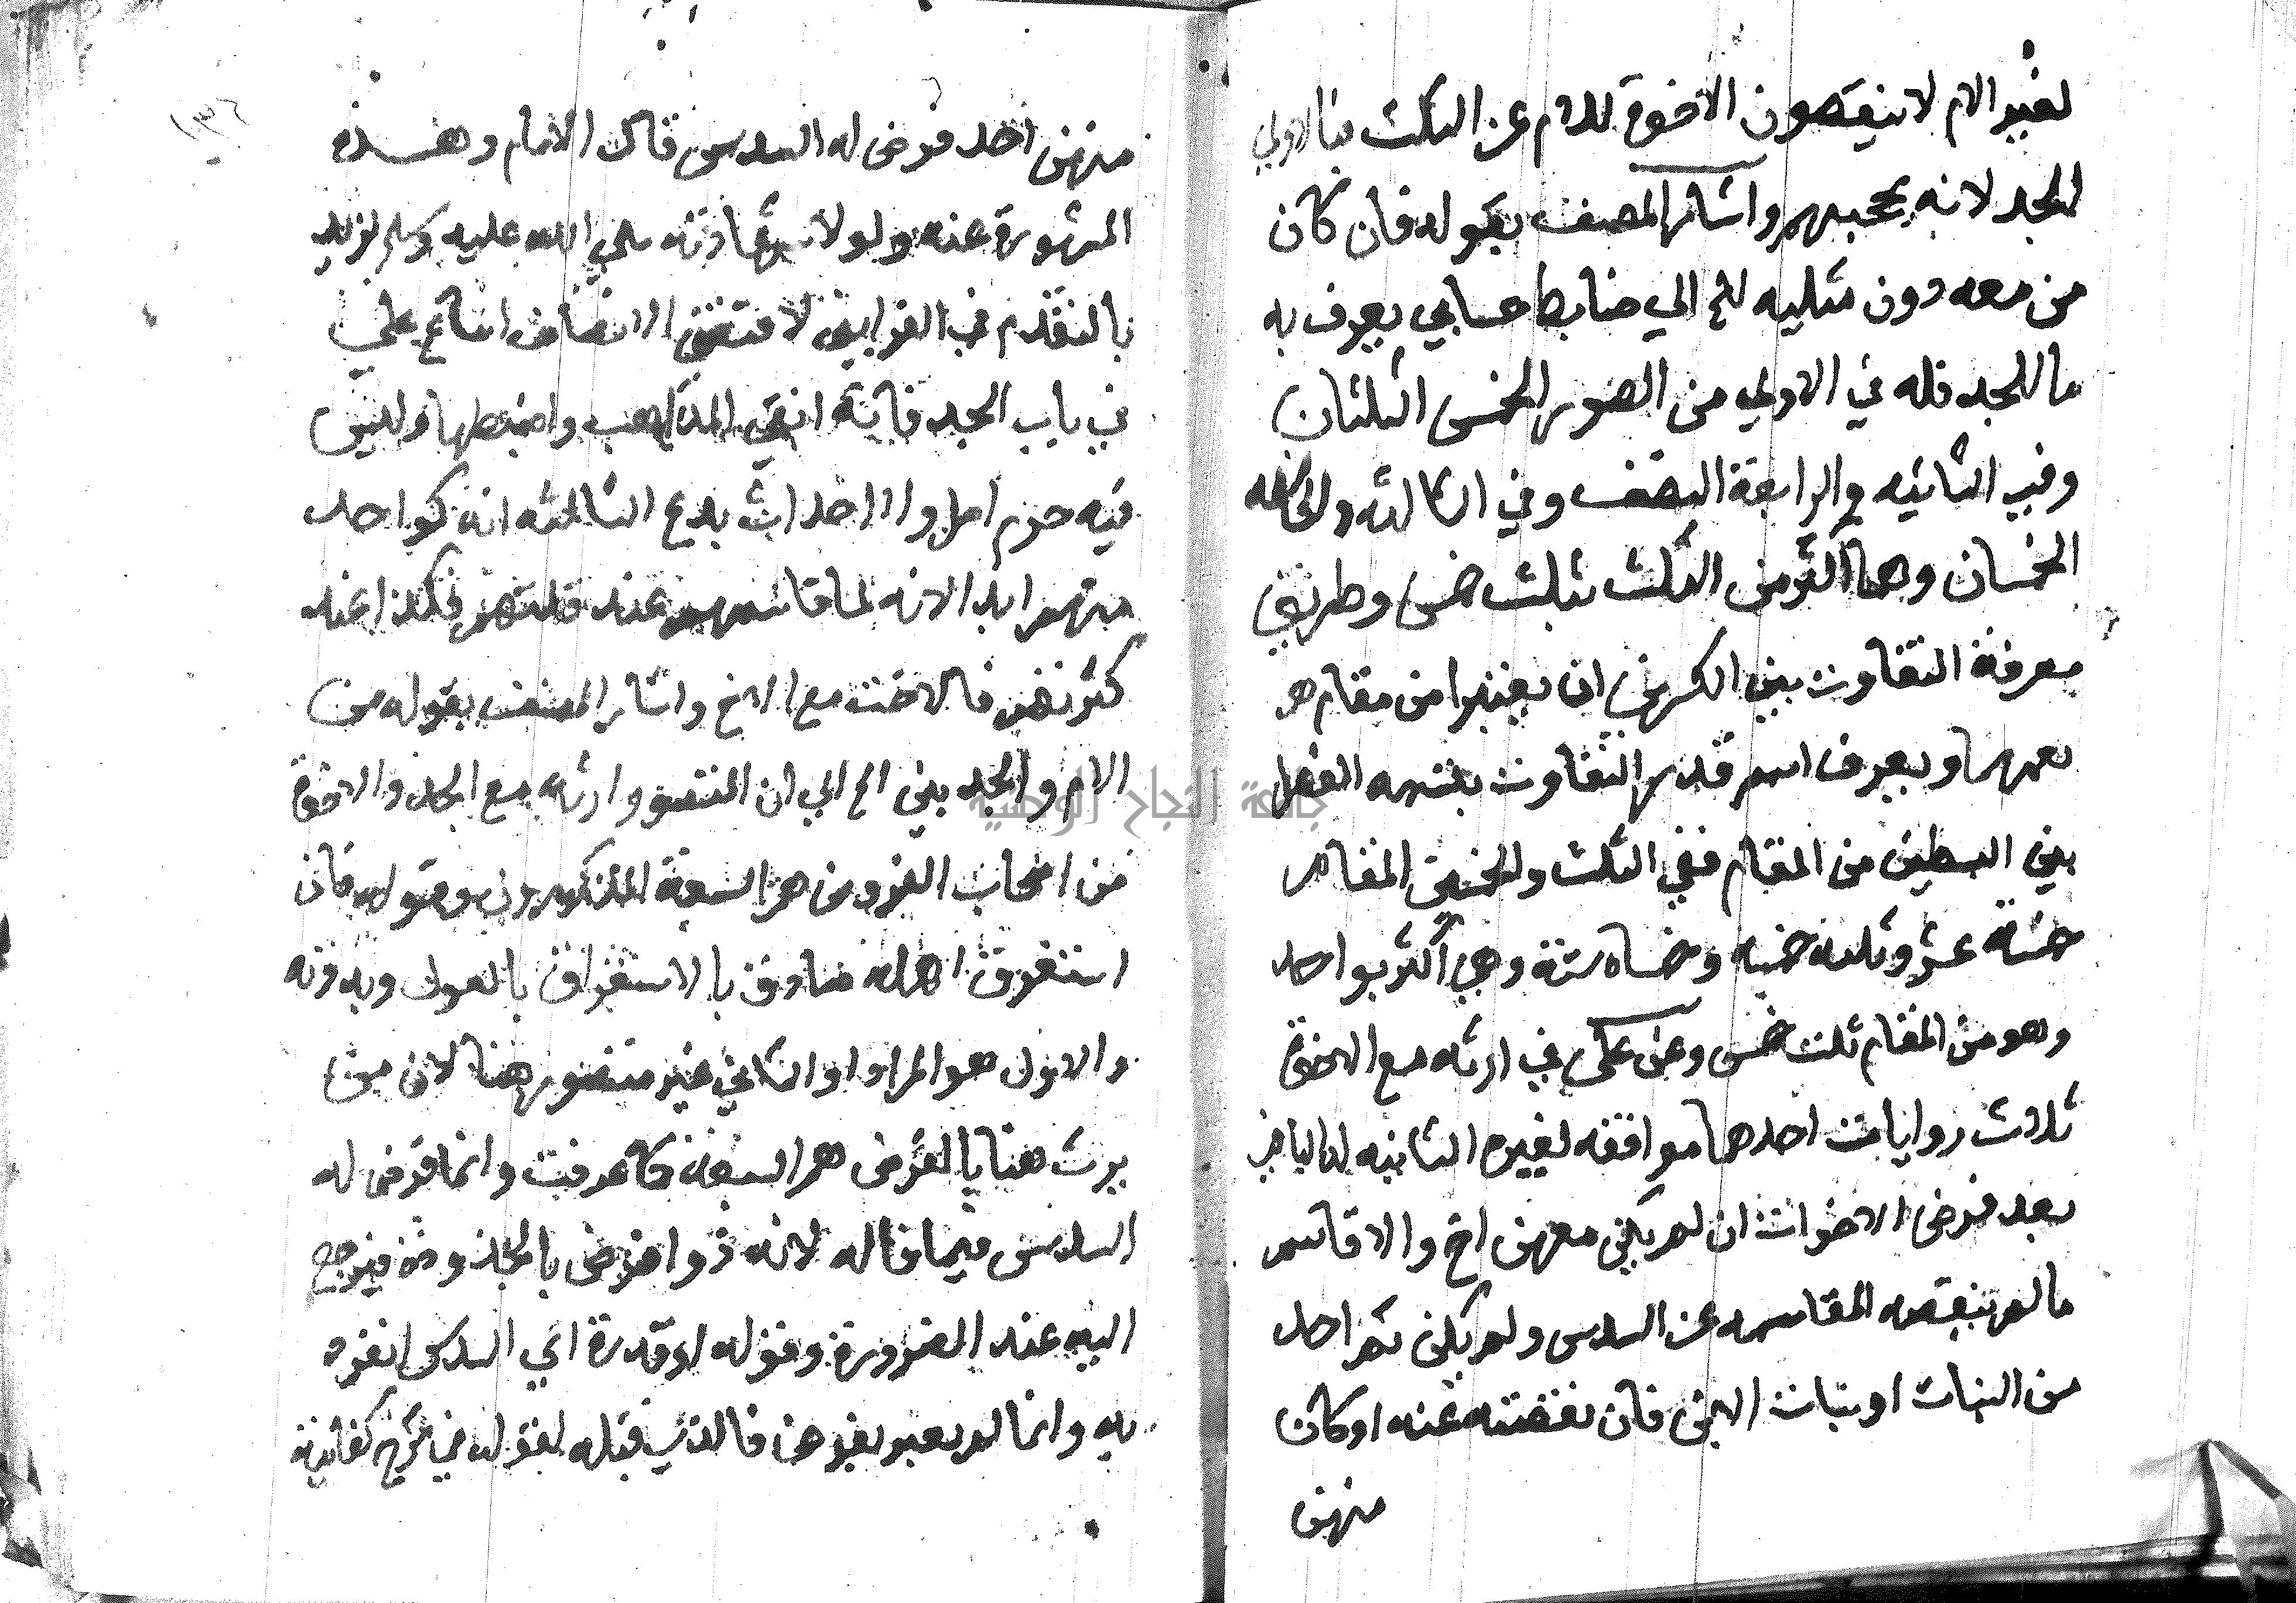 لغير الام لا ينقصون الاخوة للام عن الثلث فبالاولي
الجد لانه يحجبهم واشار المصنف بقوله فان كان
من معه دون مثليه الخ الي ضابط حسابي يعرف به
ما للجد فله في الاولي من الصور الخمس الثلثان
وفي الثانيه والرابعة النصف وفي الثالثه والخامسه
الخمسان وهما اكثر من الثلث بثلث خمس وطريق
معرفة التفاوت بين الكسرين ان يعتبرا من مقام هو
يعمهما ويعرف اسم قدر التفاوت بنسبه الفضل
بين البسطين من المقام ففي الثلث والخمسين المقام
خمسة عشر وثلثه خمسه وخمساه ستة وهي اكثر بواحد
وهو من المقام ثلث خمس وعن علي في ارثه مع الاخوة
ثلاث روايات احدهما موافقه لغيره الثانيه له الباقي
بعد فرض الاخوات ان لم يكن معهن اخ والا قاسم
ما لم تنقصه المقاسمه عن السدس ولم يكن ثم احد
من البنات او بنات الابن فان نقصته عنه او كان
منهن
منهن احد فرض له السدس قال الامام وهذه
المشهورة عنه ولولا شهادته صلي الله عليه وسلم لزيد
بالتقدم في الفرايض لاقتضي الانصاف اتباع علي
في باب الجد فانه انقي المذاهب واضبطها وليس
فيه خرم اصل ولا احداث بدع الثالثه انه كواحد
منهم ابدا لانه لما قاسمهم عند قلتهم فكذا عند
كثرتهم فالاخت مع الاخ واشار المصنف بقوله من
الام والجد بين الخ الي ان المتصور ارثه مع الجد والاخوة
من اصحاب الفروض هم السبعة المذكورون وقوله فان
استغرق اهله صادق بالاستغراق بالعول وبدونه
والاول هو المراد والثاني غير متصور هنا لان من
يرث هنا بالفرض هم السبعة كما عرفت وانما فرض له
السدس فيما قاله لانه ذو فرض بالجدودة فيرجع
اليه عند الضرورة وقوله او قدرة اي السدس انفرد
به وانما لم يعبر بفرض كالذي قبله لقوله في شرح كفايته
جامعة النجاح الوطنية